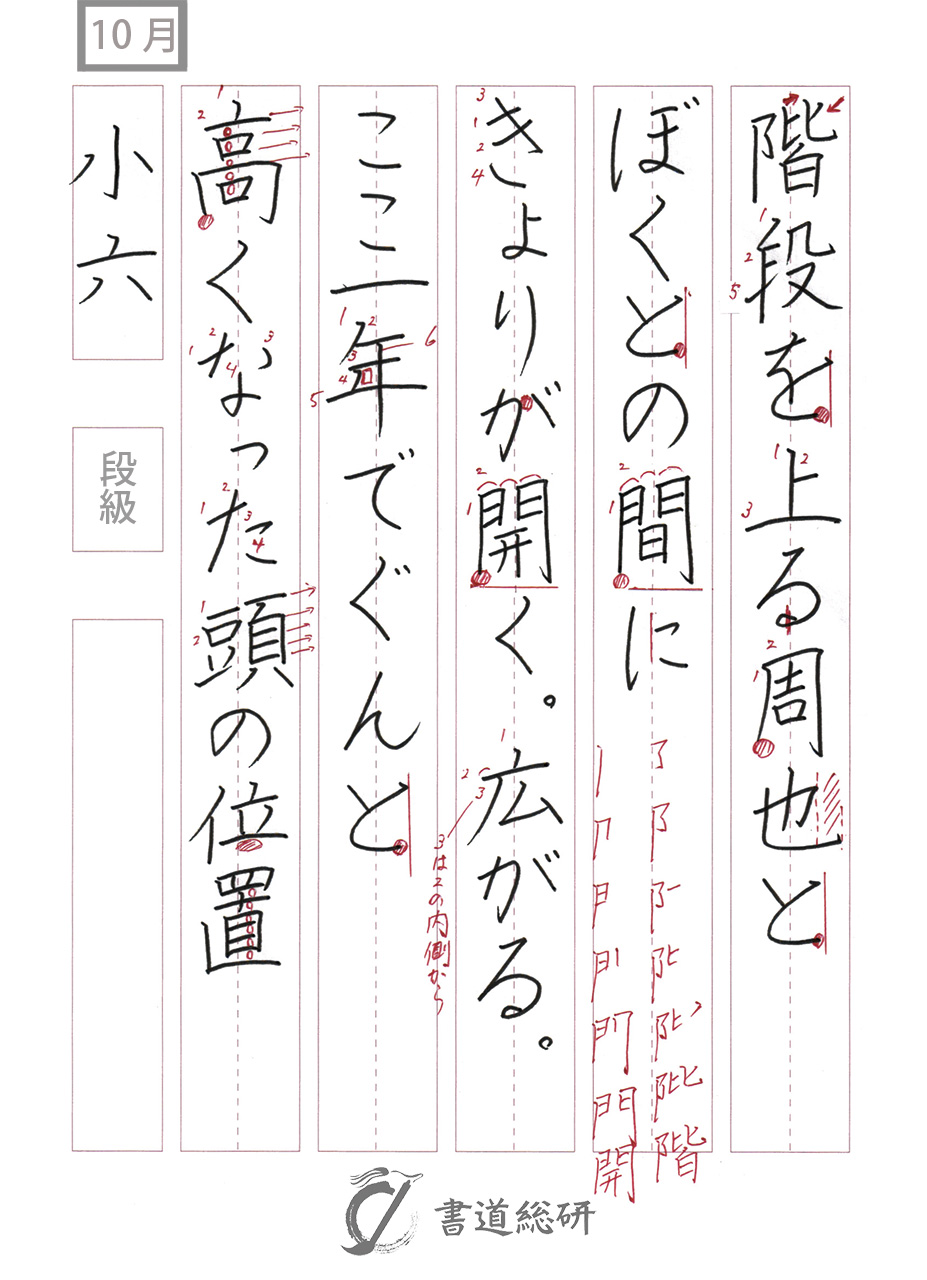 10月
階段を上る周也と
ぼくとの間に
きょりが開く。広がる。
ここ一年でぐんと
高くなった頭の位置
小六
段級
3は2の内側から
書道総研